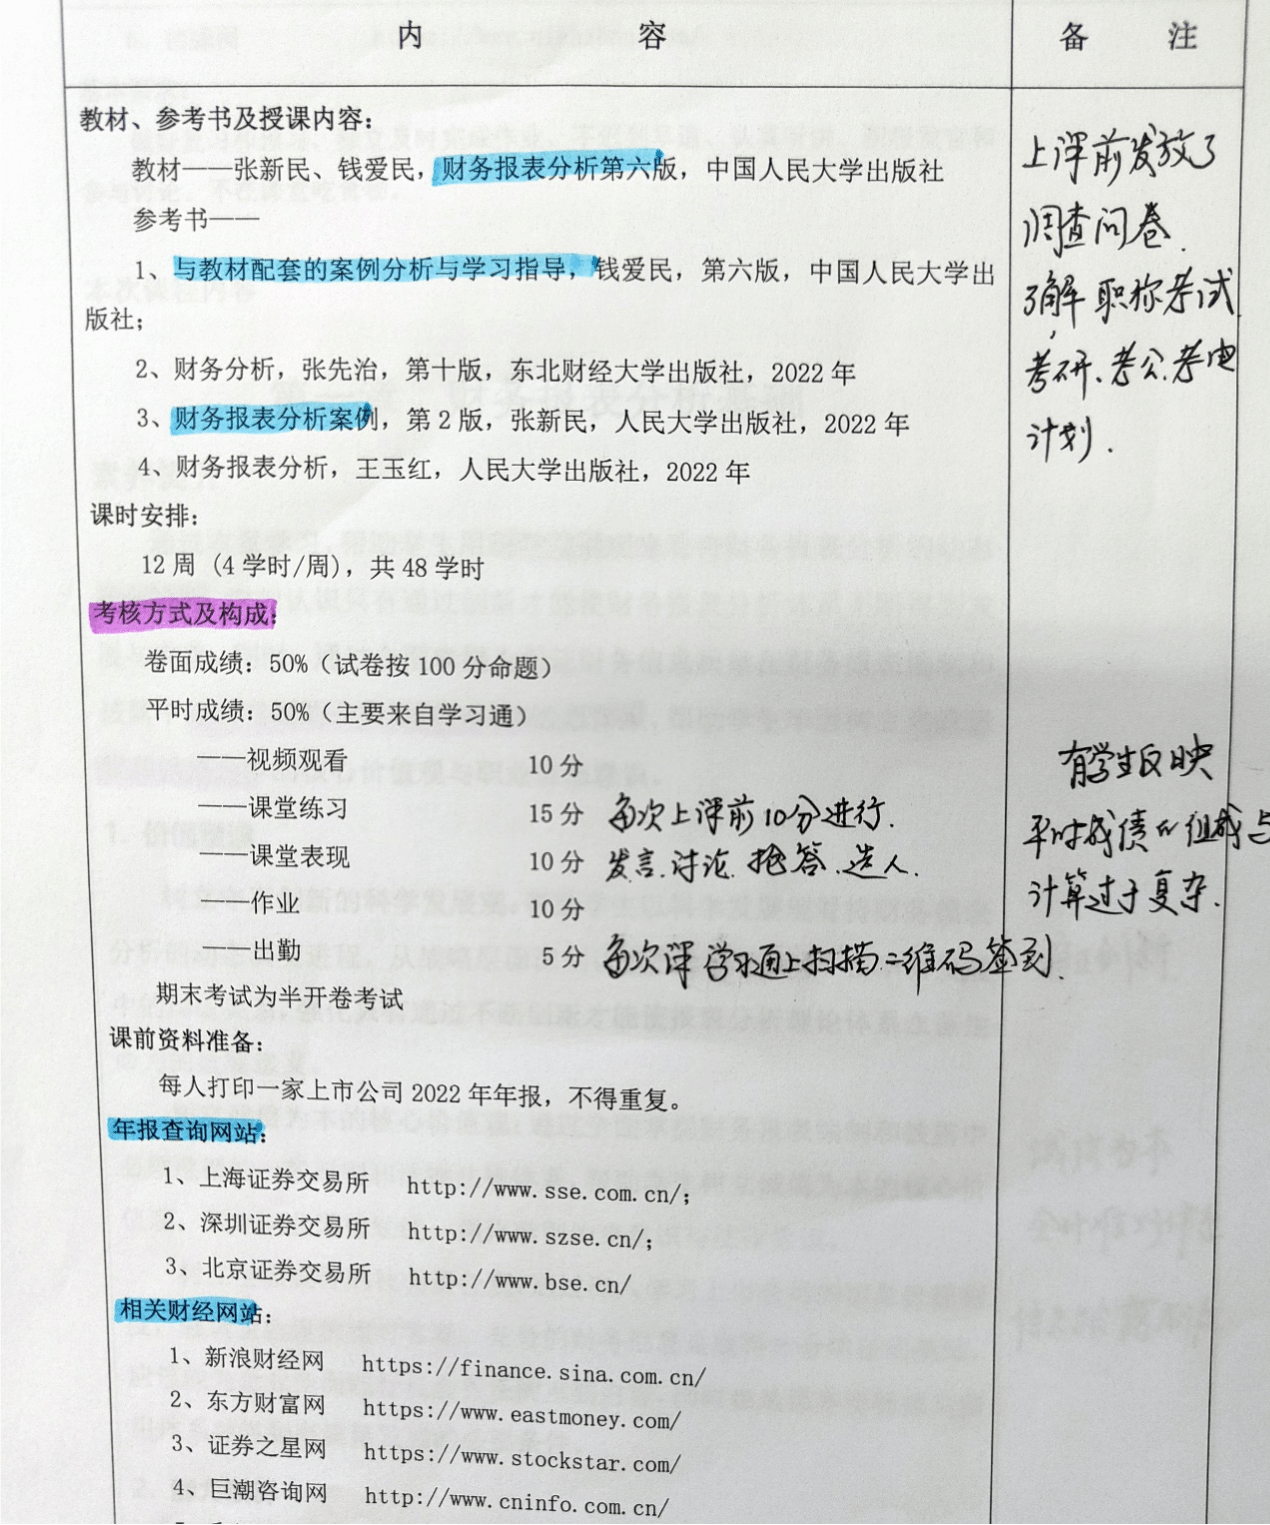 内 容
备 注
教材、参考书及授课内容：
教材——张新民、钱爱民，财务报表分析第六版，中国人民大学出版社
参考书——
1、与教材配套的案例分析与学习指导，钱爱民，第六版，中国人民大学出
版社；
2、财务分析，张先治，第十版，东北财经大学出版社，2022 年
3、财务报表分析案例，第 2 版，张新民，人民大学出版社，2022 年
4、财务报表分析，王玉红，人民大学出版社，2022 年
课时安排：
12 周（4 学时/周），共 48 学时
考核方式及构成：
卷面成绩：50%（试卷按 100 分命题）
平时成绩：50%（主要来自学习通）
——视频观看 10 分
——课堂练习 15 分 每次上课前10分进行.
——课堂表现 10 分 发言.讨论.抢答.选人.
——作业 10 分
——出勤 5 分 每次课学习通上扫描二维码签到.
期末考试为半开卷考试
课前资料准备：
每人打印一家上市公司 2022 年年报，不得重复。
年报查询网站：
1、上海证券交易所 http://www.sse.com.cn/；
2、深圳证券交易所 http://www.szse.cn/；
3、北京证券交易所 http://www.bse.cn/
相关财经网站：
1、新浪财经网 https://finance.sina.com.cn/
2、东方财富网 https://www.eastmoney.com/
3、证券之星网 https://www.stockstar.com/
4、巨潮咨询网 http://www.cninfo.com.cn/
上课前发放了
调查问卷.
了解职称考试
考研、考公、考电
计划.
有学生反映
平时成绩的组成与
计算过于复杂.